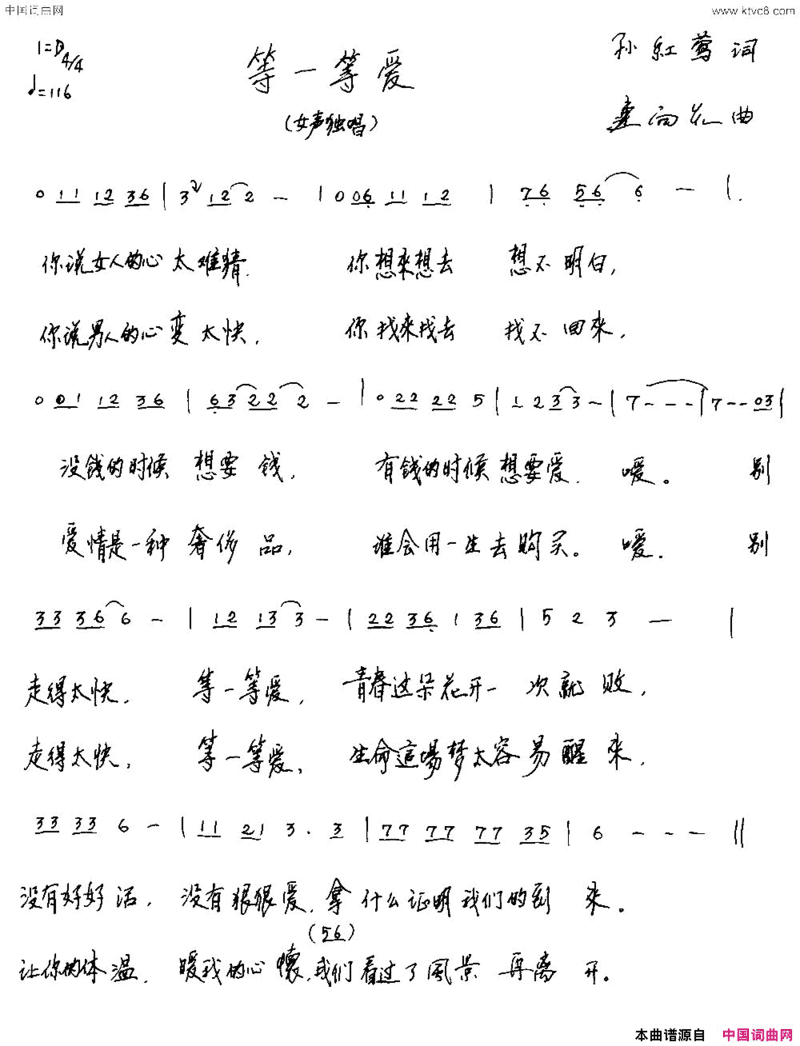 中国词曲网 www.ktvc8.com
1=D 4/4
♩=116
等一等爱
孙紅莺词
(女声独唱)
曲
0 11 12 36 | 3 12 2 - | 0 006 11 12 | 76 56 6 - |
你说女人的心太难猜. 你想來想去 想不明白,
你说男人的心变太快, 你找來找去 找不回來,
0 01 12 36 | 63 22 2 - | 0 22 22 5 | 12 33 - | 7 - - - | 7 - - 03 |
没钱的时候 想要钱, 有钱的时候想要爱. 嗳。 别
爱情是一种奢侈品, 谁会用一生去购买。 嗳. 别
33 36 6 - | 12 13 3 - | 22 36 1 36 | 5 2 3 - |
走得太快, 等一等爱, 青春这朵花开一次就败,
走得太快, 等一等爱, 生命這場梦太容易醒来,
33 33 6 - | 11 21 3. 3 | 77 77 77 35 | 6 - - - ||
没有好好活, 没有狠狠爱, 拿什么证明我们的到来。
(56)
让你的体温, 暖我的心懷, 我们看过了風景再离开。
本曲谱源自 中国词曲网